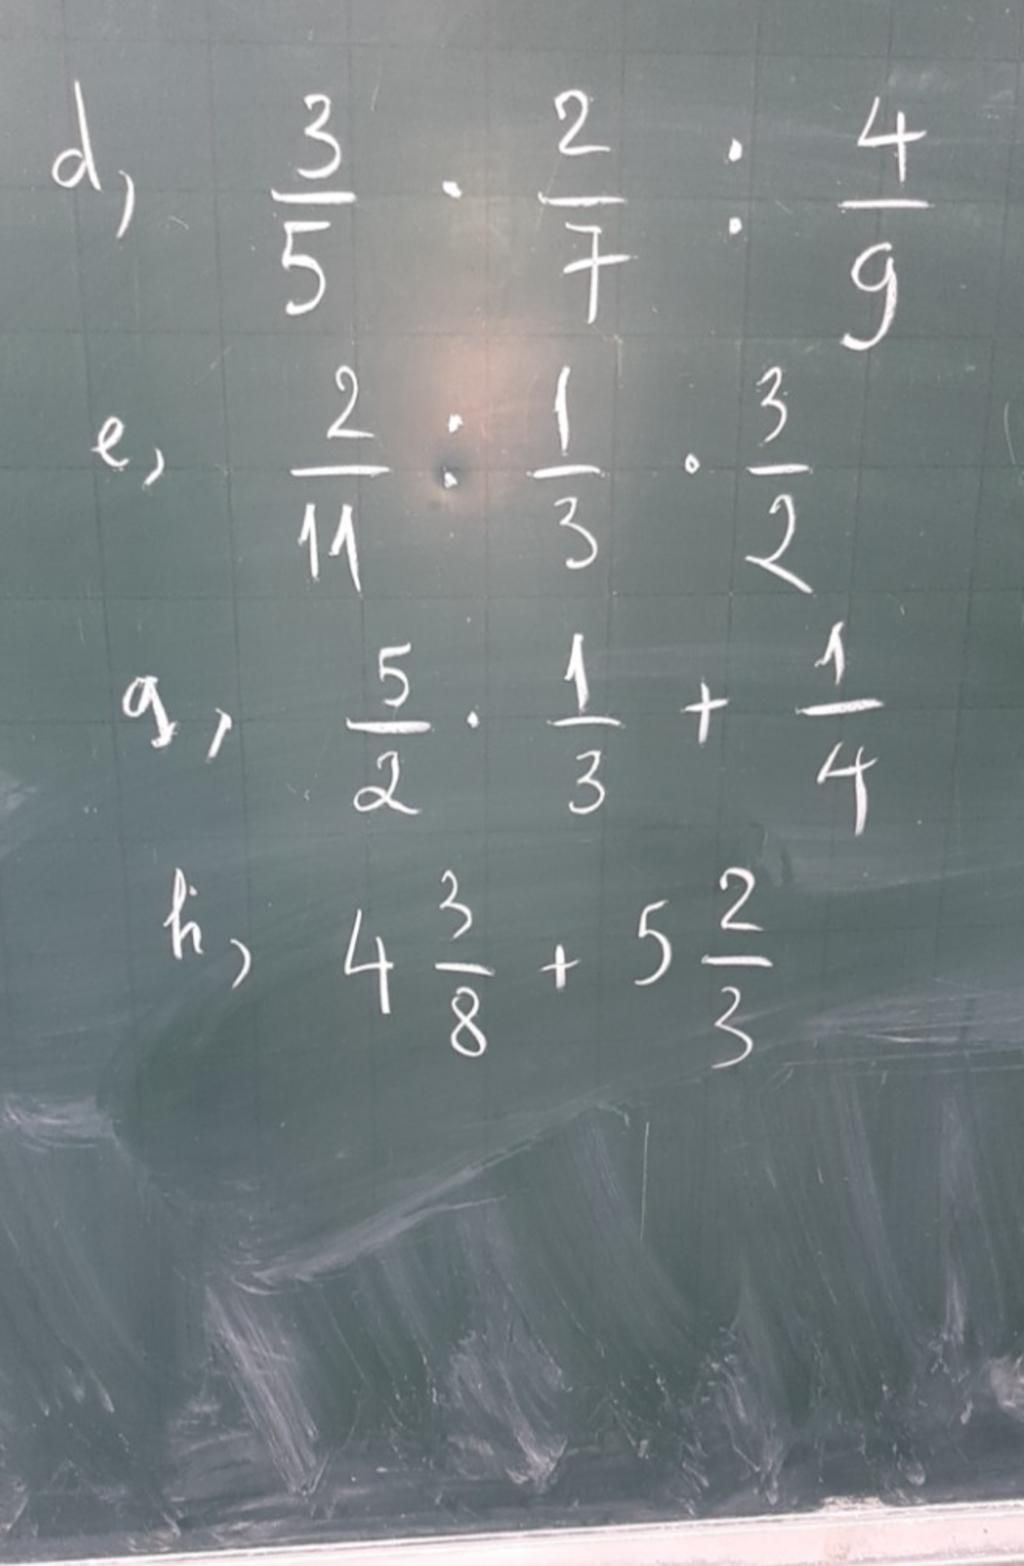 d, 3/5 . 2/7 : 4/9
e, 2/11 : 1/3 . 3/2
g, 5/2 . 1/3 + 1/4
h, 4 3/8 + 5 2/3